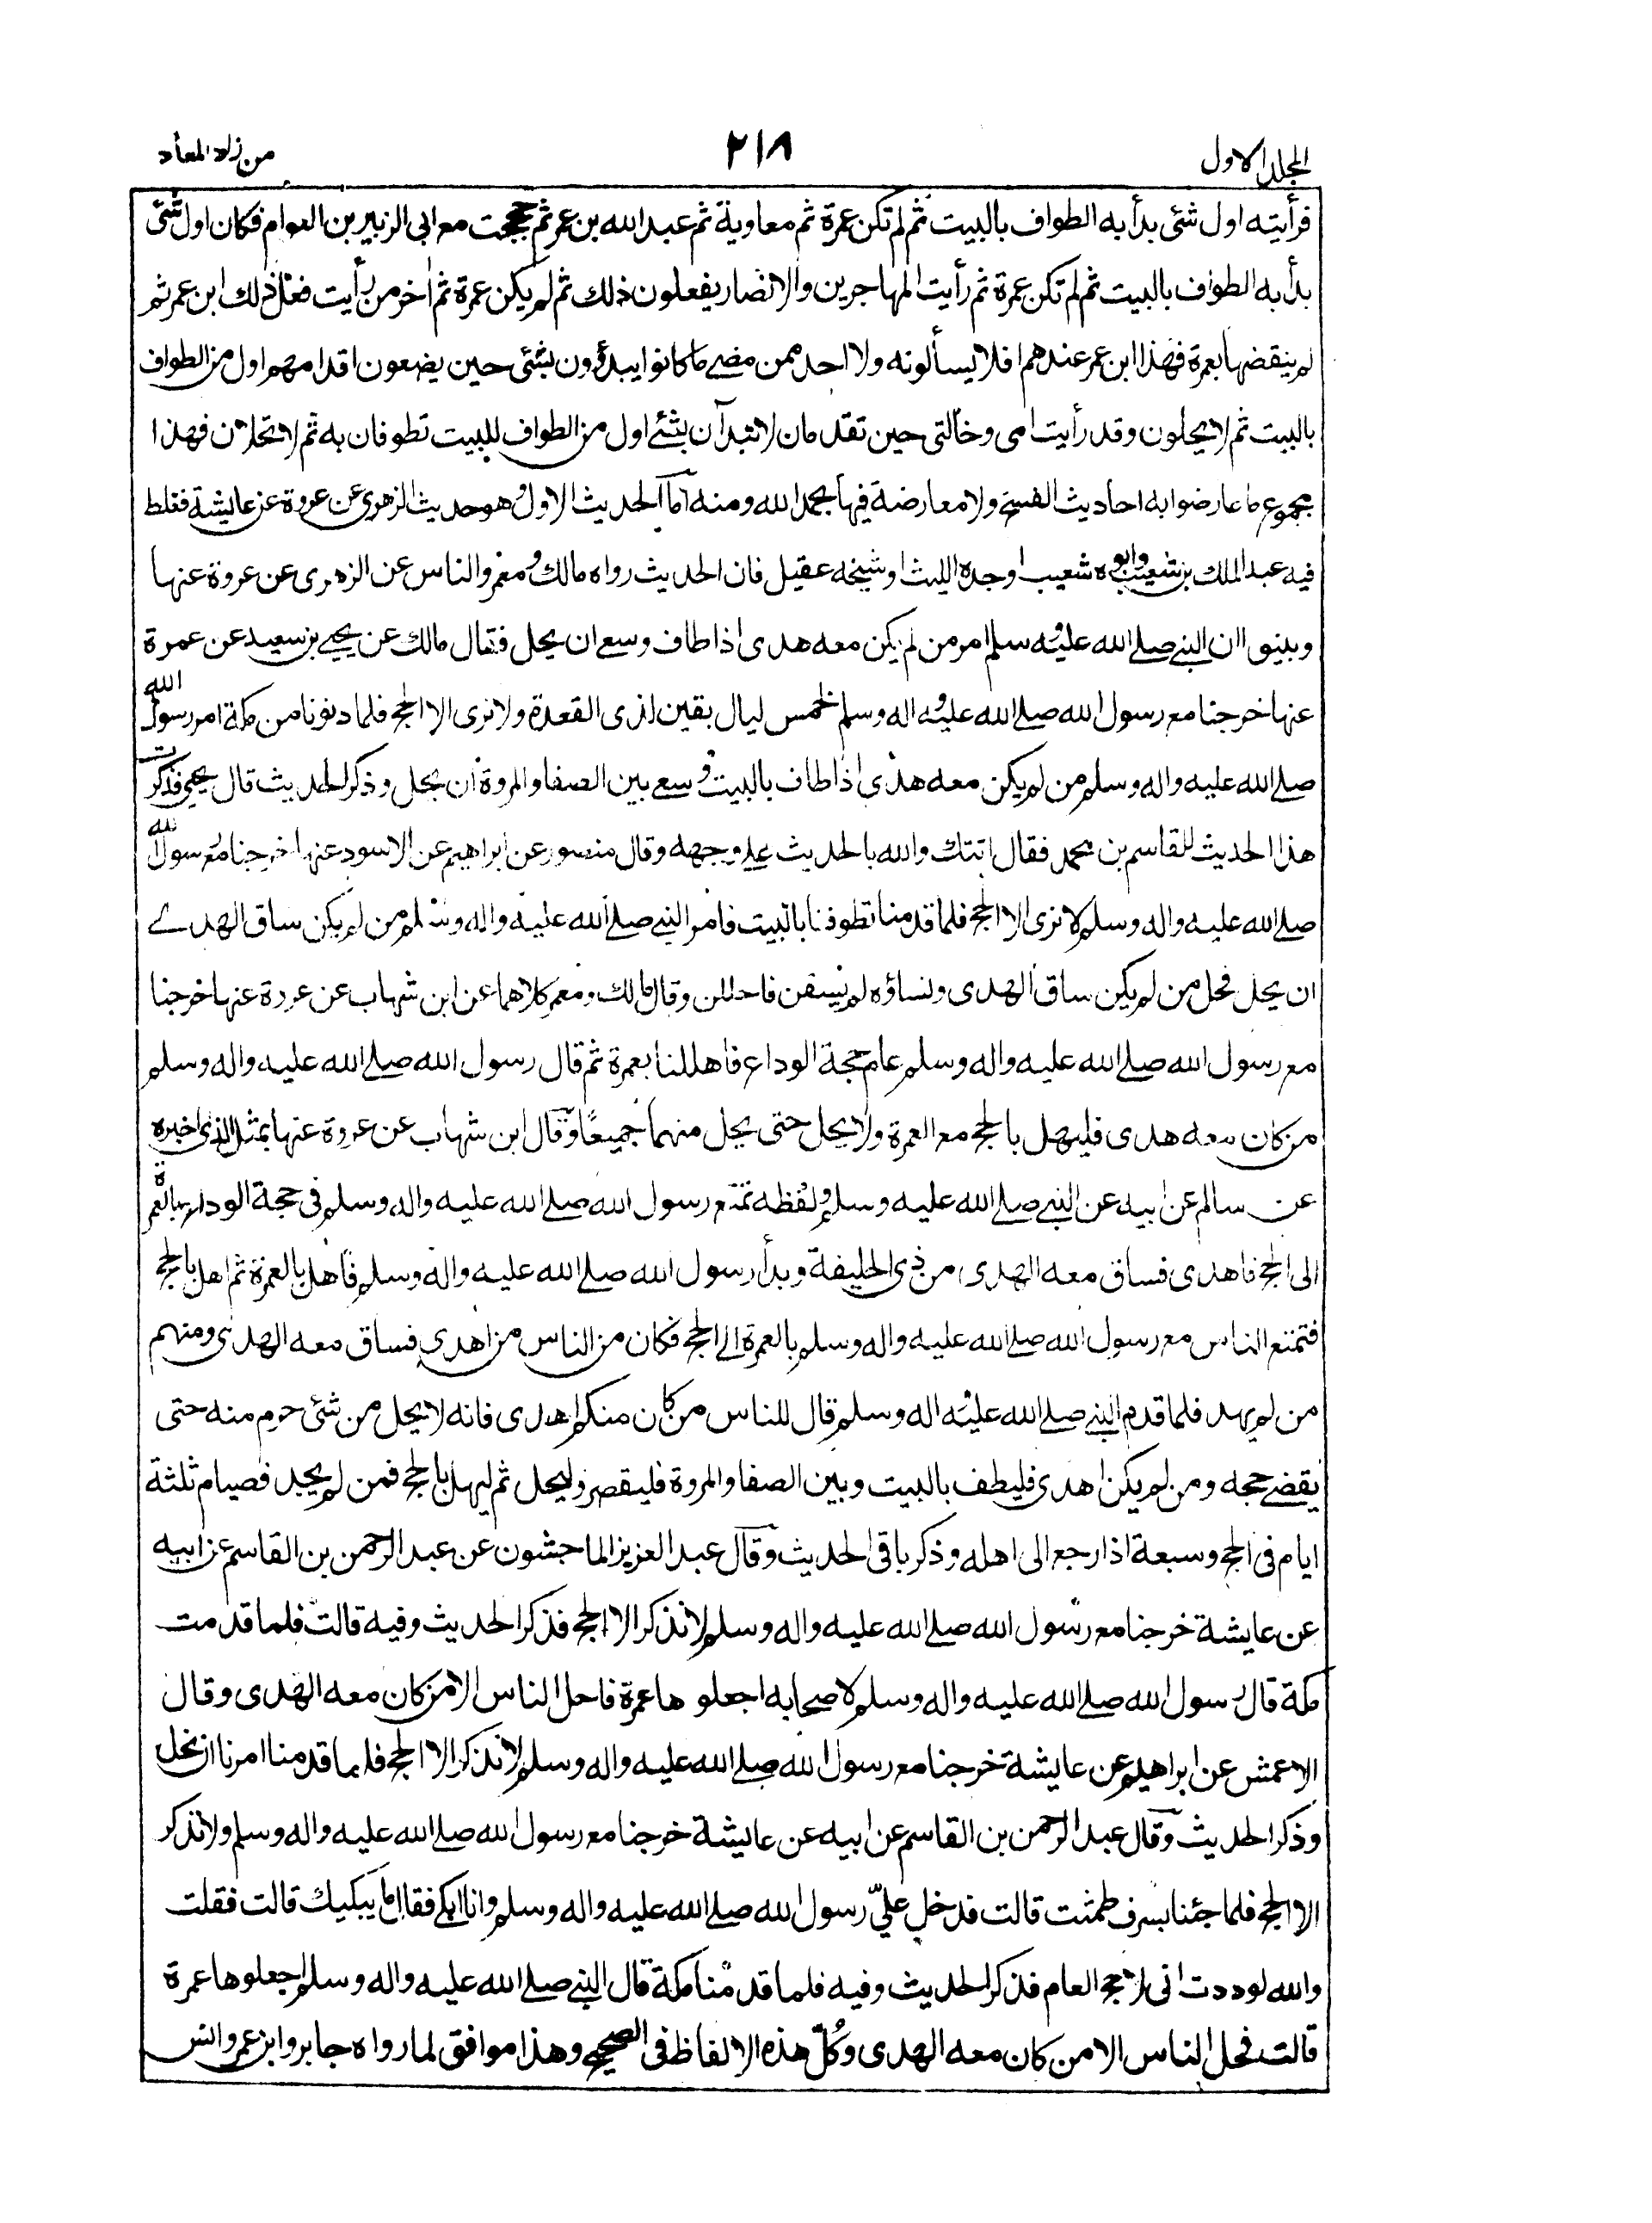 المجلد الاول
٢١٨
من زاد المعاد
فرأيته اول شئ بدأ به الطواف بالبيت ثم لم تكن عمرة ثم معاوية ثم عبد الله بن عمر ثم حججت مع ابى الزبير بن العوام فكان اول شئ
بدأ به الطواف بالبيت ثم لم تكن عمرة ثم رأيت المهاجرين والانصار يفعلون ذلك ثم لم يكن عمرة ثم اخر من رأيت فعل ذلك ابن عمر ثم
لم ينقضها بعمرة فهذا ابن عمر عندهم افلا يسألونه ولا احد ممن مضے ما كانوا يبدؤون بشئ حين يضعون اقدامهم اول من الطواف
بالبيت ثم لا يحلون وقد رأيت امى وخالتى حين تقدمان لا تبدآن بشئ اول من الطواف للبيت تطوفان به ثم لا تحلان فهذا
مجموع ما عارضوا به احاديث الفسخ ولا معارضة فيها بحمد الله ومنه اما الحديث الاول وهو حديث الزهرى عن عروة عن عايشة فغلط
فيه عبد الملك بن شعيب وابوه شعيب اوجده الليث او شيخه عقيل فان الحديث رواه مالك ومعمر والناس عن الزهرى عن عروة عنها
وبينوا ان النبے صلے الله عليه وسلم امر من لم يكن معه هدى اذا طاف وسعے ان يحل فقال مالك عن يحيے بن سعيد عن عمرة
عنها خرجنا مع رسول الله صلے الله عليه واله وسلم لخمس ليال بقين لذى القعدة ولا نرى الا الحج فلما دنونا من مكة امر رسول الله
صلے الله عليه واله وسلم من لم يكن معه هدى اذا طاف بالبيت وسعے بين الصفا والمروة ان يحل وذكر الحديث قال يحيى فذكرت
هذا الحديث للقاسم بن محمد فقال اتتك والله بالحديث علے وجهه وقال منصور عن ابراهيم عن الاسود عنها خرجنا مع رسول الله
صلے الله عليه واله وسلم لا نرى الا الحج فلما قدمنا تطوفنا بالبيت فامر النبے صلے الله عليه واله وسلم من لم يكن ساق الهدے
ان يحل فحل من لم يكن ساق الهدى ونساؤه لم يسقن فاحللن وقال مالك ومعمر كلاهما عن ابن شهاب عن عروة عنها خرجنا
مع رسول الله صلے الله عليه واله وسلم عام حجة الوداع فاهللنا بعمرة ثم قال رسول الله صلے الله عليه واله وسلم
من كان معه هدى فليهل بالحج مع العمرة ولا يحل حتى يحل منهما جميعًا وقال ابن شهاب عن عروة عنها بمثل الذى اخبره
عن سالم عن ابيه عن النبے صلے الله عليه وسلم ولفظه تمتع رسول الله صلے الله عليه واله وسلم فى حجة الوداع بالعمرة
الى الحج فاهدى فساق معه الهدى من ذى الحليفة وبدأ رسول الله صلے الله عليه واله وسلم فاهل بالعمرة ثم اهل بالحج
فتمتع الناس مع رسول الله صلے الله عليه واله وسلم بالعمرة الے الحج فكان من الناس من اهدى فساق معه الهدى ومنهم
من لم يهد فلما قدم النبے صلے الله عليه واله وسلم قال للناس من كان منكم اهدى فانه لا يحل من شئ حرم منه حتى
يقضے حجه ومن لم يكن اهدى فليطف بالبيت وبين الصفا والمروة فليقصر وليحل ثم ليهل بالحج فمن لم يجد فصيام ثلثة
ايام فى الحج وسبعة اذا رجع الى اهله وذكر باقى الحديث وقال عبد العزيز الماجشون عن عبد الرحمن بن القاسم عن ابيه
عن عايشة خرجنا مع رسول الله صلے الله عليه واله وسلم لا نذكر الا الحج فذكر الحديث وفيه قالت فلما قدمت
مكة قال رسول الله صلے الله عليه واله وسلم لاصحابه اجعلوها عمرة فاحل الناس الا من كان معه الهدى وقال
الاعمش عن ابراهيم عن عايشة خرجنا مع رسول الله صلے الله عليه واله وسلم لا نذكر الا الحج فلما قدمنا امرنا ان نحل
وذكر الحديث وقال عبد الرحمن بن القاسم عن ابيه عن عايشة خرجنا مع رسول الله صلے الله عليه واله وسلم ولا نذكر
الا الحج فلما جئنا بسرف طمثت قالت فدخل علىّ رسول الله صلے الله عليه واله وسلم وانا ابكے فقال ما يبكيك قالت فقلت
والله لوددت انى لا احج العام فذكر الحديث وفيه فلما قدمنا مكة قال النبے صلے الله عليه واله وسلم اجعلوها عمرة
قالت فحل الناس الا من كان معه الهدى وكلّ هذه الالفاظ فى الصحيح وهذا موافق لما رواه جابر وابن عمر وانس